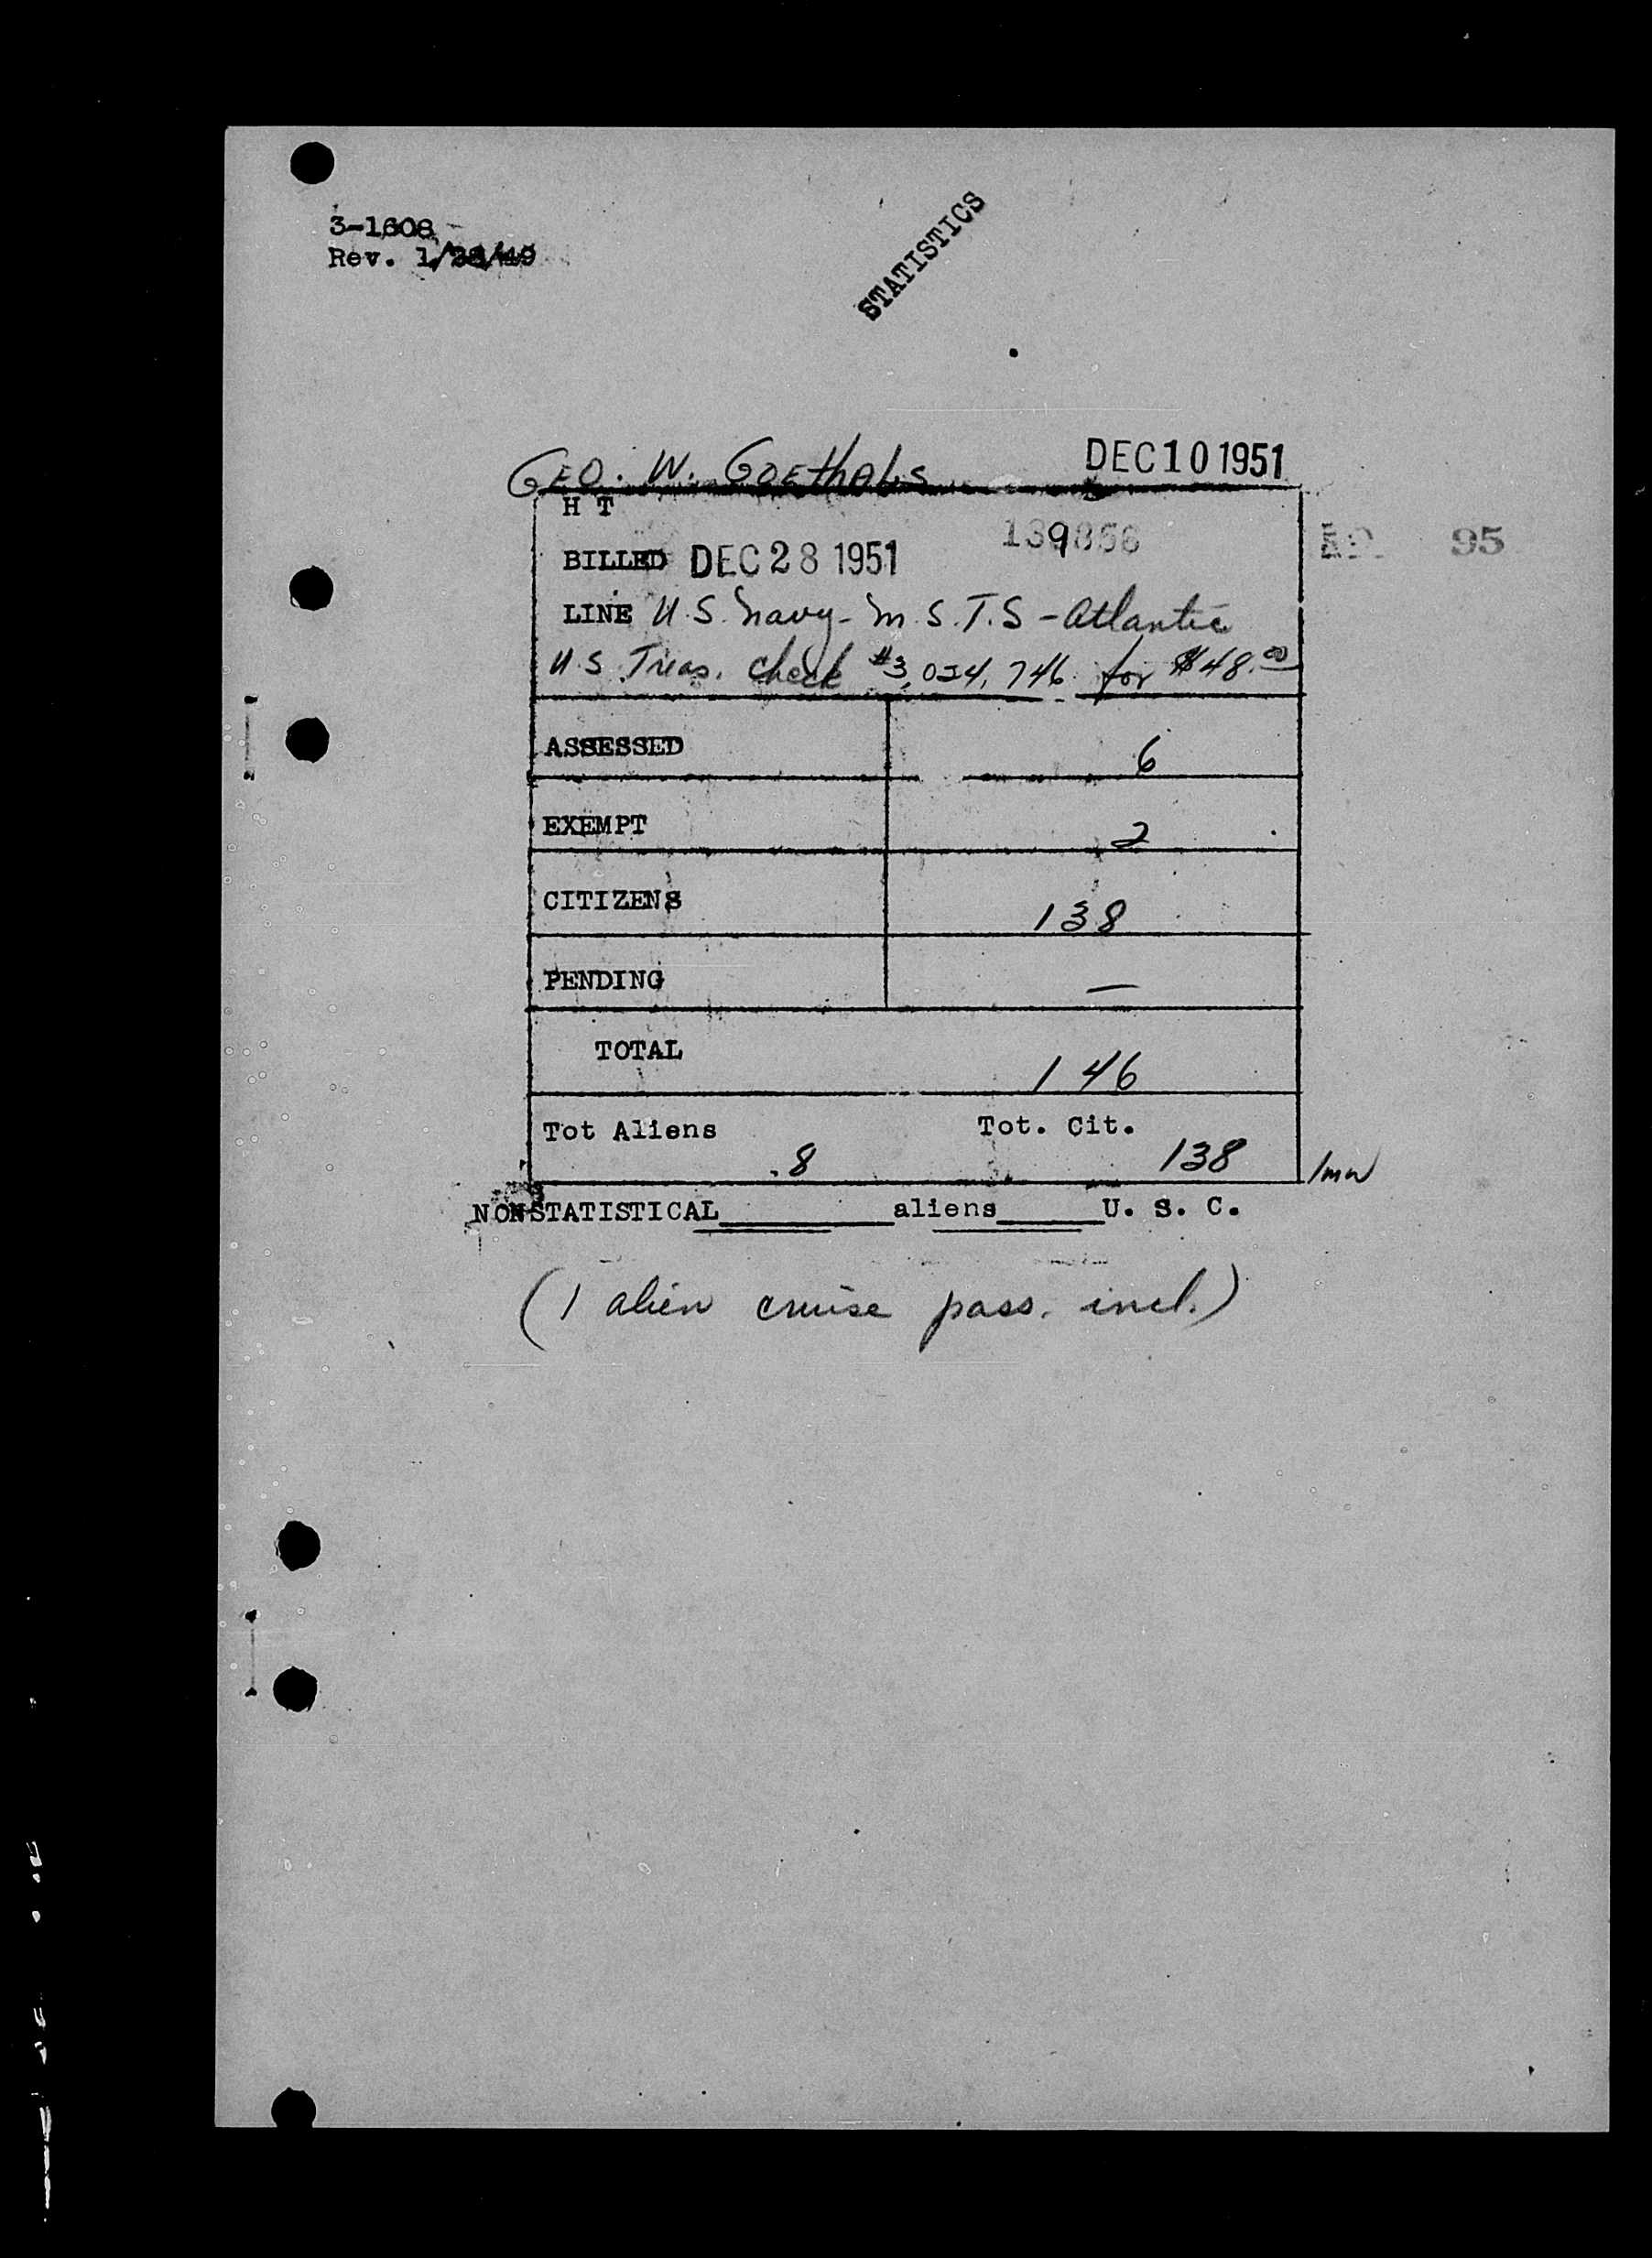 3-1608
Rev. 1/28/49
STATISTICS
GEO. W. GOEthALS DEC 10 1951
H T
139856
BILLED DEC 28 1951
95
LINE U.S. Navy - M.S.T.S - Atlantic
U.S. Treas. check #3,024,746 for $48.00
ASSESSED 6
EXEMPT 2
CITIZENS 138
PENDING —
TOTAL 146
Tot Aliens 8 Tot. Cit. 138
NONSTATISTICAL______aliens____U. S. C.
(1 alien cruise pass. incl.)